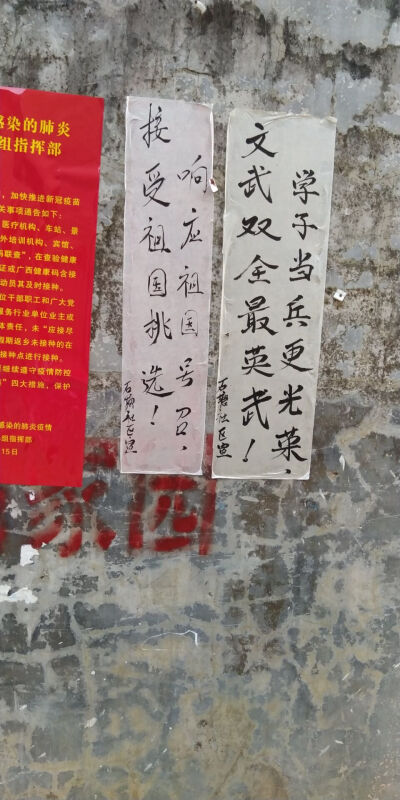 感染的肺炎
组指挥部
，加快推进新冠疫苗
关事项通告如下：
医疗机构、车站、景
外培训机构、宾馆、
码联查”，在查验健康
证或广西健康码含接
动员其及时接种。
位干部职工和广大党
服务行业单位业主或
体责任，未“应接尽
假期返乡未接种的在
接种点进行接种。
继续遵守疫情防控
”四大措施，保护
感染的肺炎疫情
组指挥部
15日
响应祖国号召，
接受祖国挑选！
社区宣
学子当兵更光荣，
文武双全最英武！
社区宣
家园